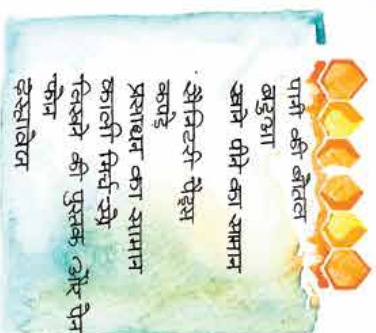 पानी की बोतल
बटुआ
खाने पीने का सामान
सैनिटरी पैड्स
कपड़े
प्रसाधन का सामान
काली मिर्च स्प्रे
लिखने की पुस्तक और पेन
फोन
हैंडसैनिटाइज़र